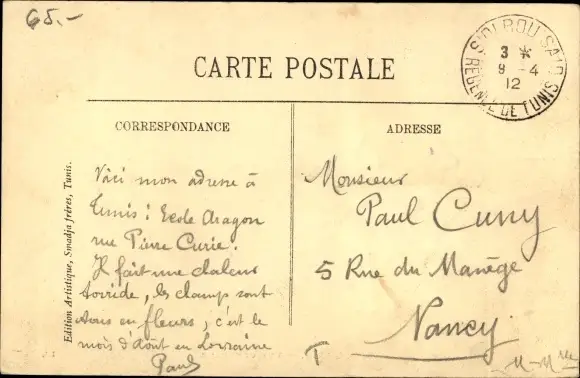 65.-
CARTE POSTALE
SIDI BOU SAID
3 *
9 -4
12
REGENCE DE TUNIS
CORRESPONDANCE
ADRESSE
Voici mon adresse à
Tunis : Ecole Aragon
rue Pierre Curie.
Il fait une chaleur
torride, les champs sont
tous en fleurs, c'est le
mois d'août en Lorraine
Paul
Monsieur
Paul Cuny
5 Rue du Manège
Nancy
T
M-Mlle
Edition Artistique, Smadja frères, Tunis.